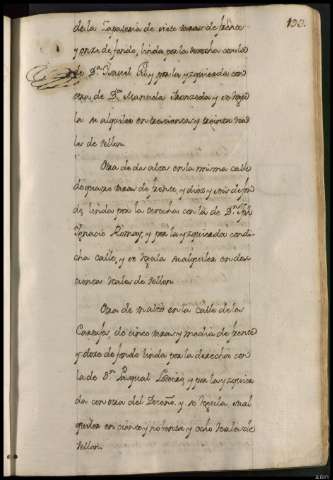 130.
de la Zapateria de siete varas de frente
y onze de fondo, linda por la derecha con la
de Dn. Miguel y por la yzquierda con
otra de Da. Manuela y se regu
la su alquiler en trescientos y treinta rea
les de Vellon.
Otra de dos altos en la misma calle
de quatro varas de frente, y diez y seis de fon
do, linda por la derecha con la de Dn.
Ignacio y por la yzquierda con di
cha calle, y se regula su alquiler en dos
cientos reales de Vellon.
Otra de un alto en la calle de la
de cinco varas y media de frente
y doze de fondo linda por la derecha con
la de Dn. Pasqual y por la yzquier
da con otra del y se regula su al
quiler en ciento y nobenta y ocho reales de
Vellon.